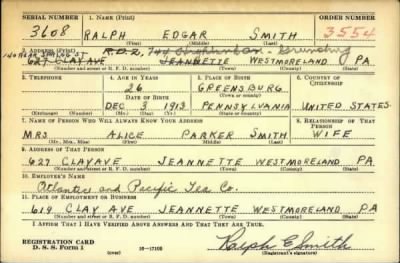 SERIAL NUMBER 1. NAME (Print) ORDER NUMBER
3608 RALPH EDGAR SMITH 3554
(First) (Middle) (Last)
2. ADDRESS (Print) R.D.2,
627 CLAY AVE JEANNETTE WESTMORELAND PA
(Number and street or R. F. D. number) (Town) (County) (State)
3. TELEPHONE 4. AGE IN YEARS 5. PLACE OF BIRTH 6. COUNTRY OF CITIZENSHIP
26 GREENSBURG
DATE OF BIRTH (Town or county)
DEC 3 1913 PENNSYLVANIA UNITED STATES
(Exchange) (Number) (Mo.) (Day) (Yr.) (State or country)
7. NAME OF PERSON WHO WILL ALWAYS KNOW YOUR ADDRESS 8. RELATIONSHIP OF THAT PERSON
MRS ALICE PARKER SMITH WIFE
(Mr., Mrs., Miss) (First) (Middle) (Last)
9. ADDRESS OF THAT PERSON
627 CLAY AVE JEANNETTE WESTMORELAND PA
(Number and street or R. F. D. number) (Town) (County) (State)
10. EMPLOYER'S NAME
Atlantic and Pacific Tea Co.
11. PLACE OF EMPLOYMENT OR BUSINESS
619 CLAY AVE JEANNETTE WESTMORELAND PA
(Number and street or R. F. D. number) (Town) (County) (State)
I AFFIRM THAT I HAVE VERIFIED ABOVE ANSWERS AND THAT THEY ARE TRUE.
REGISTRATION CARD
D. S. S. Form 1 (over) 16-17105 Ralph E Smith
(Registrant's signature)